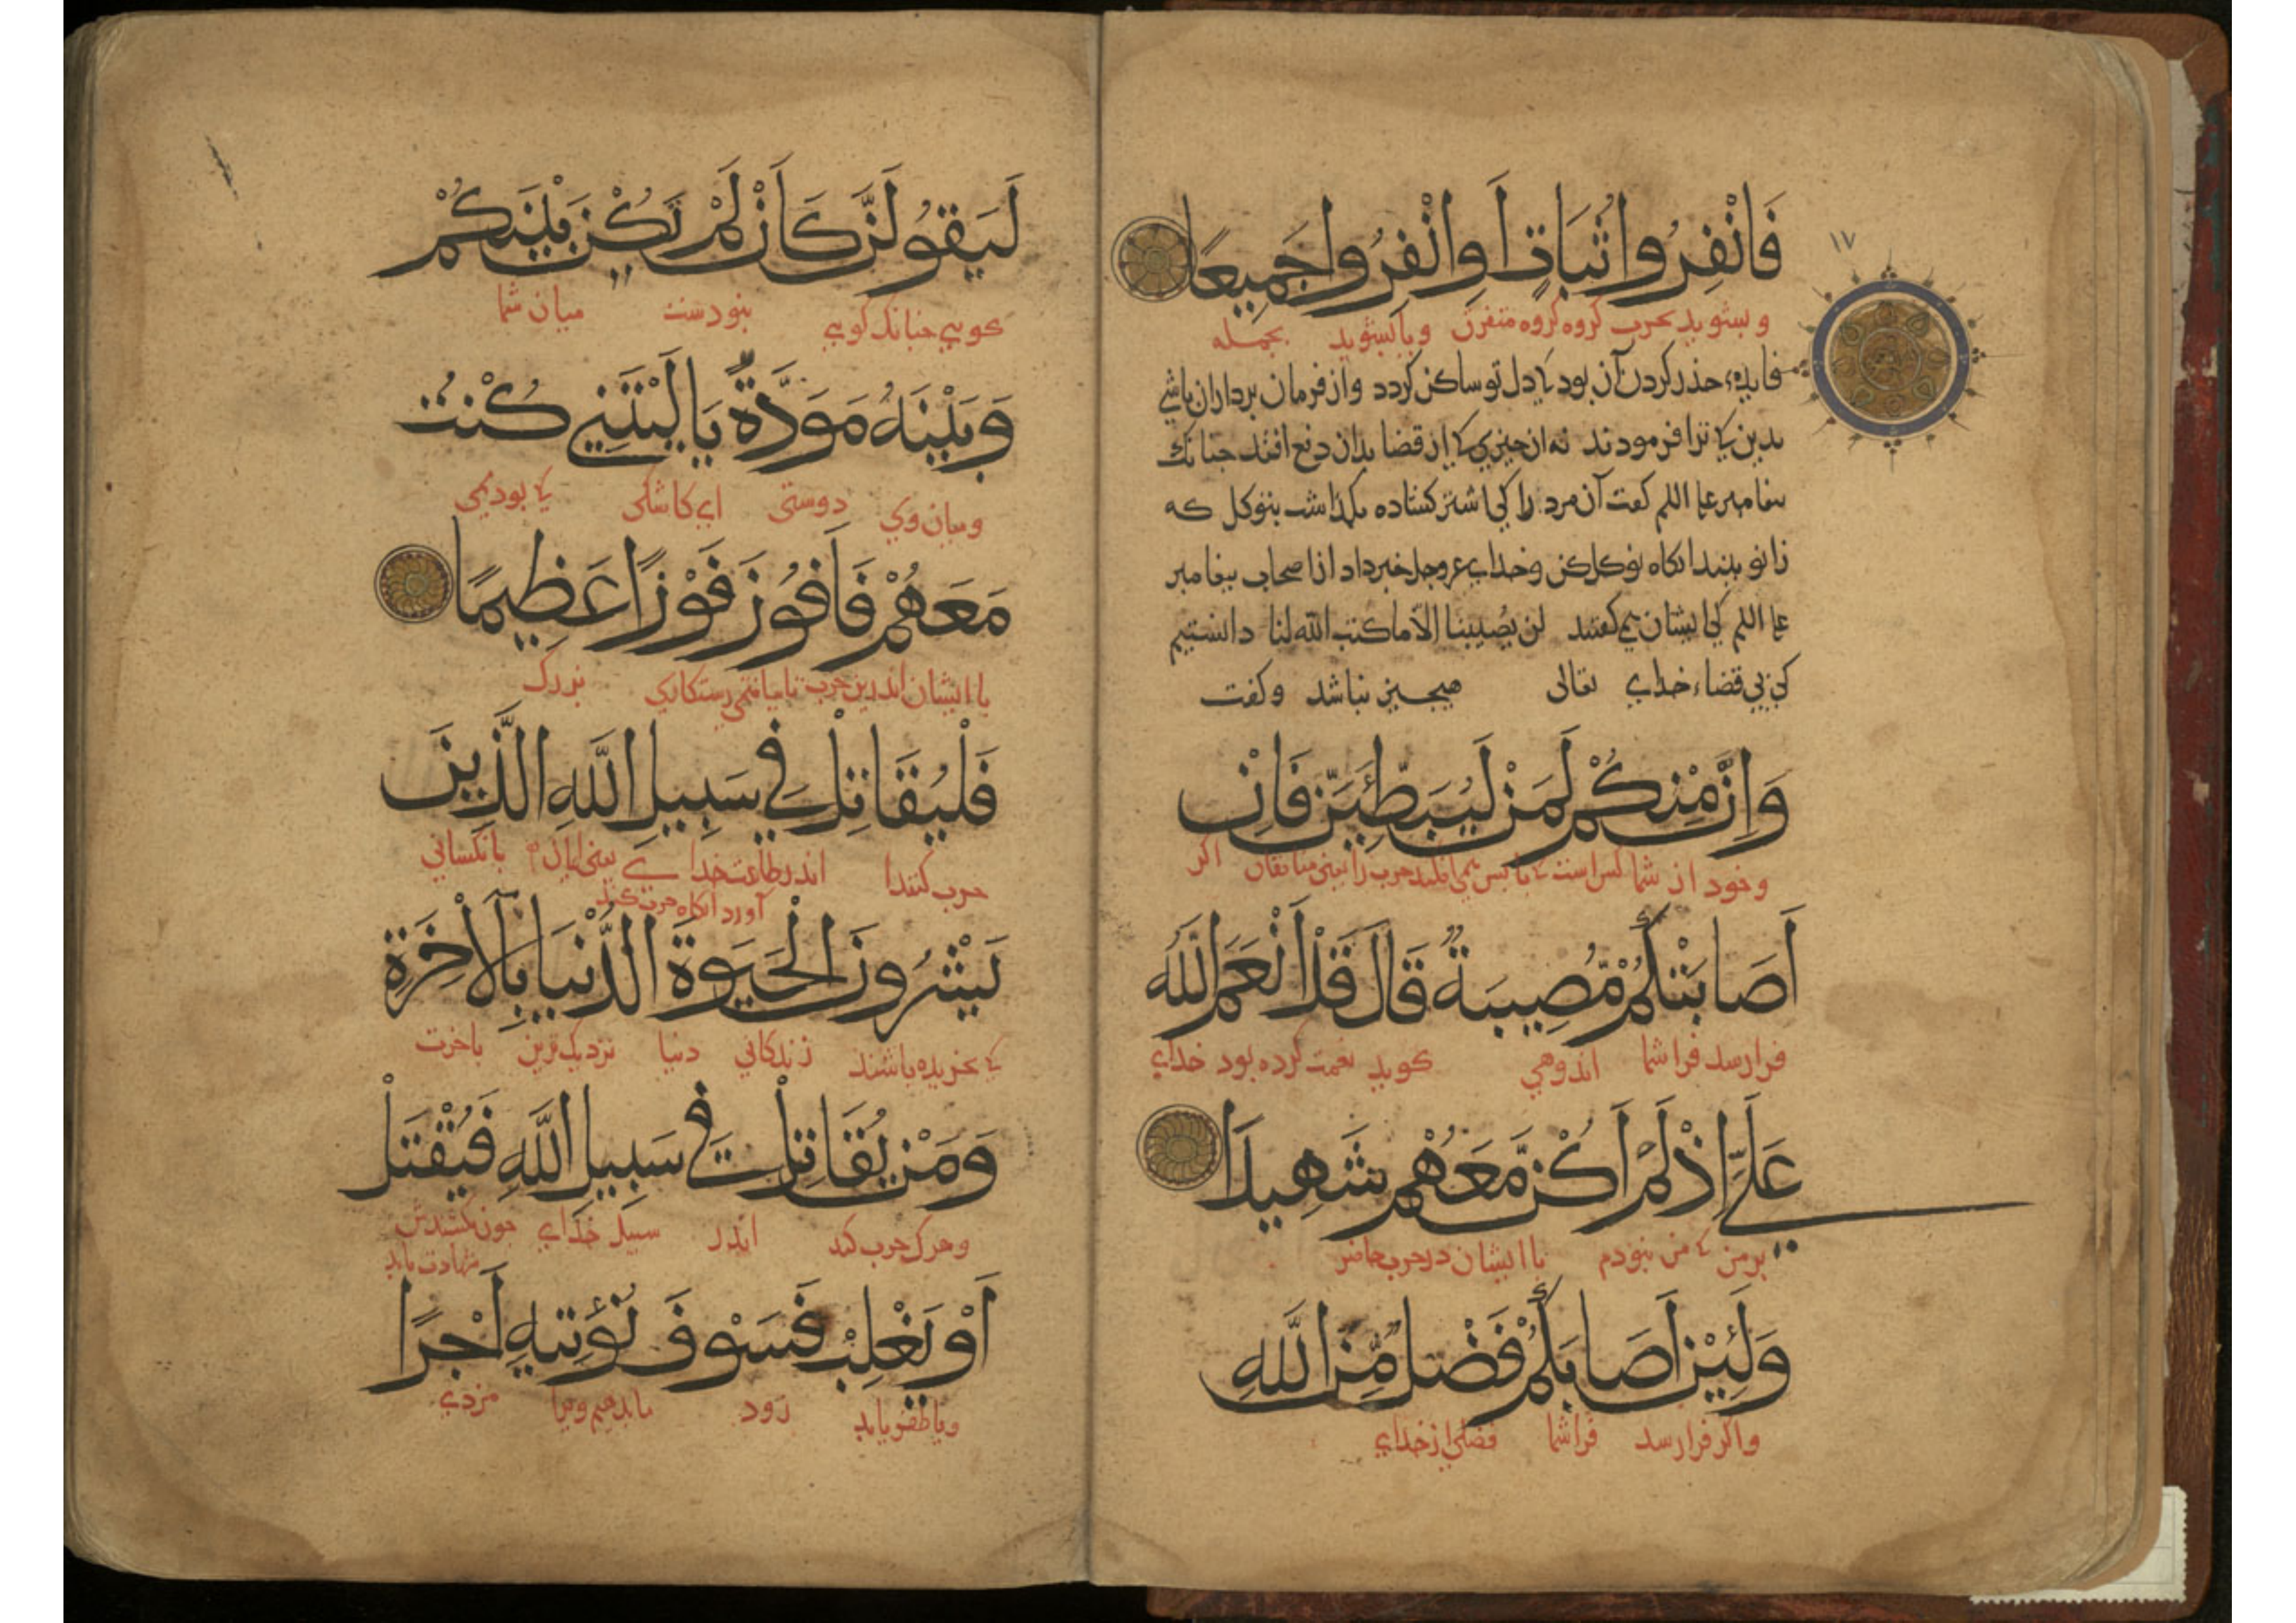 ١٧
فَانْفِرُوا ثُبَاتٍ اَوِانْفِرُوا جَمِيعًا
و بیشوید بحرب کروه کروه متفرق ویا بیشوید بجمله
فایده حذر کردن آن بود کی دل تو ساکن کردد واز فرمان برداران باشی
بدین کی ترا فرمودند نه ان جیزی کی از قضا بدان دفع افتد جنانک
بیغامبر علیه السلم کفت آن مرد را کی اشتر کشاده بکذاشت بتوکل که
زانو ببند انکاه توکل کن وخدای عزوجل خبر داد از اصحاب بیغامبر
علیه السلم کی ایشان می کفتند لن یصیبنا الا ما کتب الله لنا دانستیم
کی بی قضاء خدای تعالی هیجیز نباشد وکفت
وَاِنَّ مِنْكُمْ لَمَنْ لَيُبَطِّئَنَّ فَاِنْ
وخود از شما کس است کی باپس می افکند حرب را یعنی منافقان اکر
اَصَابَتْكُمْ مُصِيبَةٌ قَالَ قَدْ اَنْعَمَ اللّٰهُ
فرارسد فرا شما اندوهی کوید نعمت کرده بود خدای
عَلَيَّ اِذْ لَمْ اَكُنْ مَعَهُمْ شَهِيدًا
بر من کی من نبودم با ایشان در حرب حاضر
وَلَئِنْ اَصَابَكُمْ فَضْلٌ مِنَ اللّٰهِ
واکر فرارسد فرا شما فضلی از خدای
لَيَقُولَنَّ كَاَنْ لَمْ تَكُنْ بَيْنَكُمْ
کویی جنانک کویی نبودست میان شما
وَبَيْنَهُ مَوَدَّةٌ يَا لَيْتَنِي كُنْتُ
ومیان وی دوستی ای کاشکی کی بودمی
مَعَهُمْ فَاَفُوزَ فَوْزًا عَظِيمًا
با ایشان اندرین حرب تا بیافتمی رستکاریی بزرک
فَلْيُقَاتِلْ فِي سَبِيلِ اللّٰهِ الَّذِينَ
حرب کنندا اندر طاعت خدای یعنی ایمان بانکسانی
آورد انکاه حرب کند
يَشْرُونَ الْحَيٰوةَ الدُّنْيَا بِالْاٰخِرَةِ
کی بخریده باشند زندکانی دنیا نزدیک‌ترین باخرت
وَمَنْ يُقَاتِلْ فِي سَبِيلِ اللّٰهِ فَيُقْتَلْ
وهرک حرب کند اندر سبیل خدای جون بکشندش
شهادت یابد
اَوْ يَغْلِبْ فَسَوْفَ نُؤْتِيهِ اَجْرًا
ویا ظفر یابد زود ما بدهیم ویرا مزدی